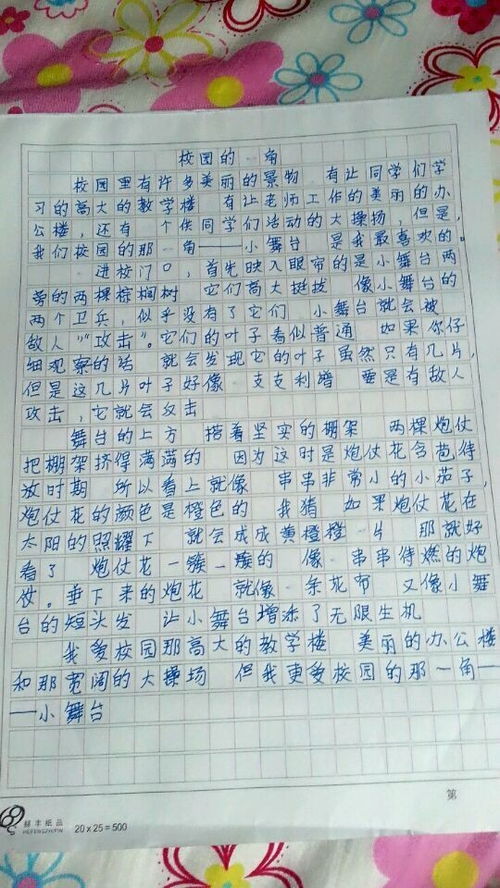 校园的一角
校园里有许多美丽的景物 有让同学们学
习的高大的教学楼 有让老师工作的美丽的办
公楼，还有 个供同学们活动的大操场，但是，
我们校园的那一角——小舞台 是我最喜欢的。
进校门口，首先映入眼帘的是小舞台两
旁的两棵棕榈树 它们高大挺拔 像小舞台的
两个卫兵，似乎没有了它们 小舞台就会被
敌人“攻击”。它们的叶子看似普通 如果你仔
细观察的话 就会发现它的叶子虽然只有几片，
但是这几片叶子好像 支支利 要是有敌人
攻击，它就会反击
舞台的上方 搭着坚实的棚架 两棵炮仗
把棚架挤得满满的 因为这时是炮仗花含苞待
放时期 所以看上就像 串串非常小的小茄子，
炮仗花的颜色是橙色的 我猜 如果炮仗花在
太阳的照耀下 就会成成黄橙橙一片 那就好
看了 炮仗花一簇一簇的 像一串串待燃的炮
仗。垂下来的炮花 就像一条花布 又像小舞
台的短头发 让小舞台增添了无限生机
我爱校园那高大的教学楼 美丽的办公楼
和那宽阔的大操场 但我更爱校园的那一角—
—小舞台
第
赫丰纸品
HEFENGZHIPIN
20x25=500